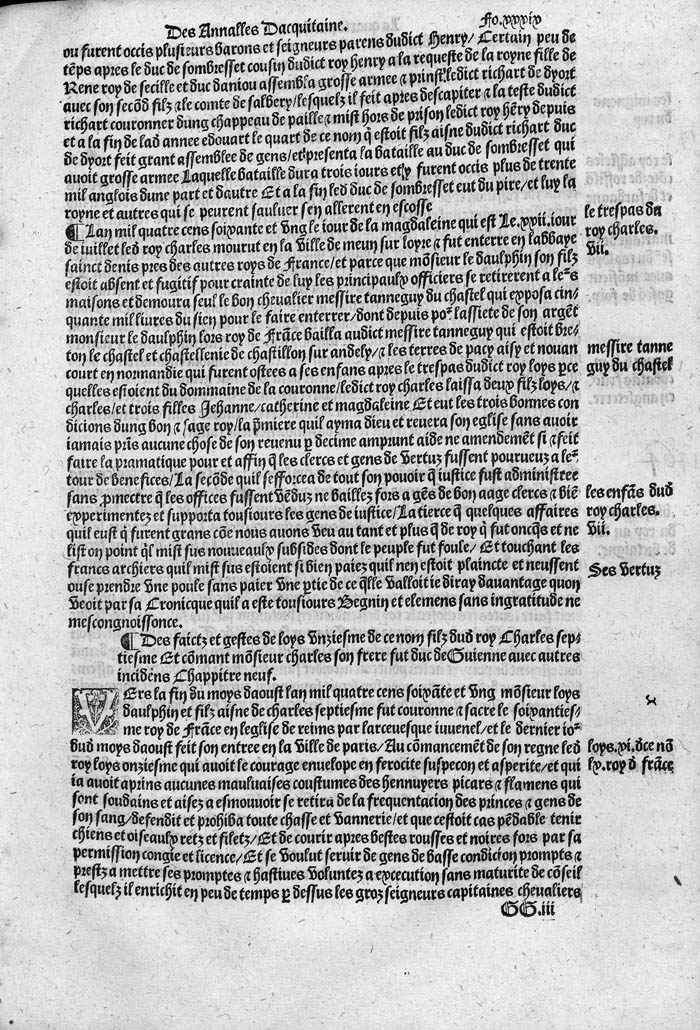 Des Annalles Dacquitaine.
Fo.xxxix
ou furent occis plusieurs barons et seigneurs parens dudict Henry/ Certain peu de
tẽps apres le duc de sombresset cousin dudict roy henry a la requeste de la royne fille de
Rene roy de secille et duc daniou assembla grosse armee ⁊ prinst ledict richart de dyort
auec son secõd filz ⁊ le comte de salbery/lesquelz il feit apres descapiter ⁊ la teste dudict
richart couronner dung chappeau de paille ⁊ mist hors de prison ledict roy hẽry depuis
et a la fin de lad annee edouart le quart de ce nom q̃ estoit filz aisne dudict richart duc
de dyort feit grant assemblee de gens/et p̃senta la bataille au duc de sombresset qui
auoit grosse armee Laquelle bataille dura trois iours et y furent occis plus de trente
mil anglois dune part et dautre Et a la fin led duc de sombresset eut du pire/et luy la
royne et autres qui se peurent sauluer sen allerent en escosse
¶ Lan mil quatre cens soixante et vng le iour de la magdaleine qui est Le.xxii.iour
de iuillet led roy charles mourut en la ville de meun sur loyre ⁊ fut enterre en labbaye
sainct denis pres des autres roys de France/et parce que mõsieur le daulphin son filz
estoit absent et fugitif pour crainte de luy les principaulx officiers se retirerent a leᷣs
maisons et demoura seul le bon cheualier messire tanneguy du chastel qui exposa cin-
quante mil liures du sien pour le faire enterrer/dont depuis poᷣ lassiete de son argẽt
monsieur le daulphin lors roy de Frãce bailla audict messire tanneguy qui estoit bre-
ton le chastel et chastellenie de chastillon sur andely/⁊ les terres de pacy aisy et nouan
court en normandie qui furent ostees a ses enfans apres le trespas dudict roy loys pce
quelles estoient du dommaine de la couronne/ledict roy charles laissa deux filz loys/⁊
charles/et trois filles Jehanne/catherine et magdaleine Et eut les trois bonnes con
dicions dung bon ⁊ sage roy/la p̃miere quil ayma dieu et reuera son eglise sans auoir
iamais prĩs aucune chose de son reuenu p decime amprunt aide ne amendemẽt si ⁊ feit
faire la pramatique pour et affin q̃ les clercs et gens de vertuz fussent pourueuz a leᷣ
tour de benefices/La secõde quil sefforcea de tout son pouoir q̃ iustice fust administree
sans p̃mectre q̃ les offices fussent vẽduz ne baillez fors a gẽs de bon aage clercs ⁊ biẽ
experimentez et supporta tousiours les gens de iustice/La tierce q̃ quelques affaires
quil eust q̃ furent grans cõe nous auons veu au tant et plus q̃ de roy q̃ fut oncq̃s et ne
list on point q̃l mist sus nouueaulx subsides dont le peuple fut foule/ Et touchant les
francs archiers quil mist sus estoient si bien paiez quil nen estoit plaincte et neussent
ouse prendre vne poule sans paier vne ptie de ce q̃lle valloit ie diray dauantage quon
veoit par sa Cronicque quil a este tousiours Begnin et clemens sans ingratitude ne
mescongnoissonce.
le trespas du
roy charles.
vii.
messire tanne
guy du chastel
les enfãs dud
roy charles.
vii.
Ses vertuz
¶ Des faictz et gestes de loys vnziesme de ce nom filz dud roy Charles sep-
tiesme Et cõmant mõsieur charles son frere fut duc de Guienne auec autres
incidẽs Chappitre neuf.
VErs la fin du moys daoust lan mil quatre cens soixãte et vng mõsieur loys
daulphin et filz aisne de charles septiesme fut couronne ⁊ sacre le soixanties-
me roy de Frãce en leglise de reims par larceuesque iuuenel/ et le dernier ioᷣ
dud moys daoust feit son entree en la ville de paris/Au cõmancemẽt de son regne led
roy loys onziesme qui auoit le courage enuelope en ferocite suspecon et asperite/et qui
ia auoit aprins aucunes mauluaises coustumes des hennuyers picars ⁊ flamens qui
sont soudains et aisez a esmouuoir se retira de la frequentacion des princes ⁊ gens de
son sang/defendit et prohiba toute chasse et vannerie/et que cestoit cas pẽdable tenir
chiens et oiseaulx retz et filetz/Et de courir apres bestes rousses et noires fors par sa
permission congie et licence/Et se voulut seruir de gens de basse condicion prompts ⁊
prestz a mettre ses promptes ⁊ hastiues voluntez a execcution sans maturite de cõseil
lesquelz il enrichit en peu de temps p dessus les groz seigneurs capitaines cheualiers
loys.xi.dce nõ
lx.roy d frãce
GG.iii